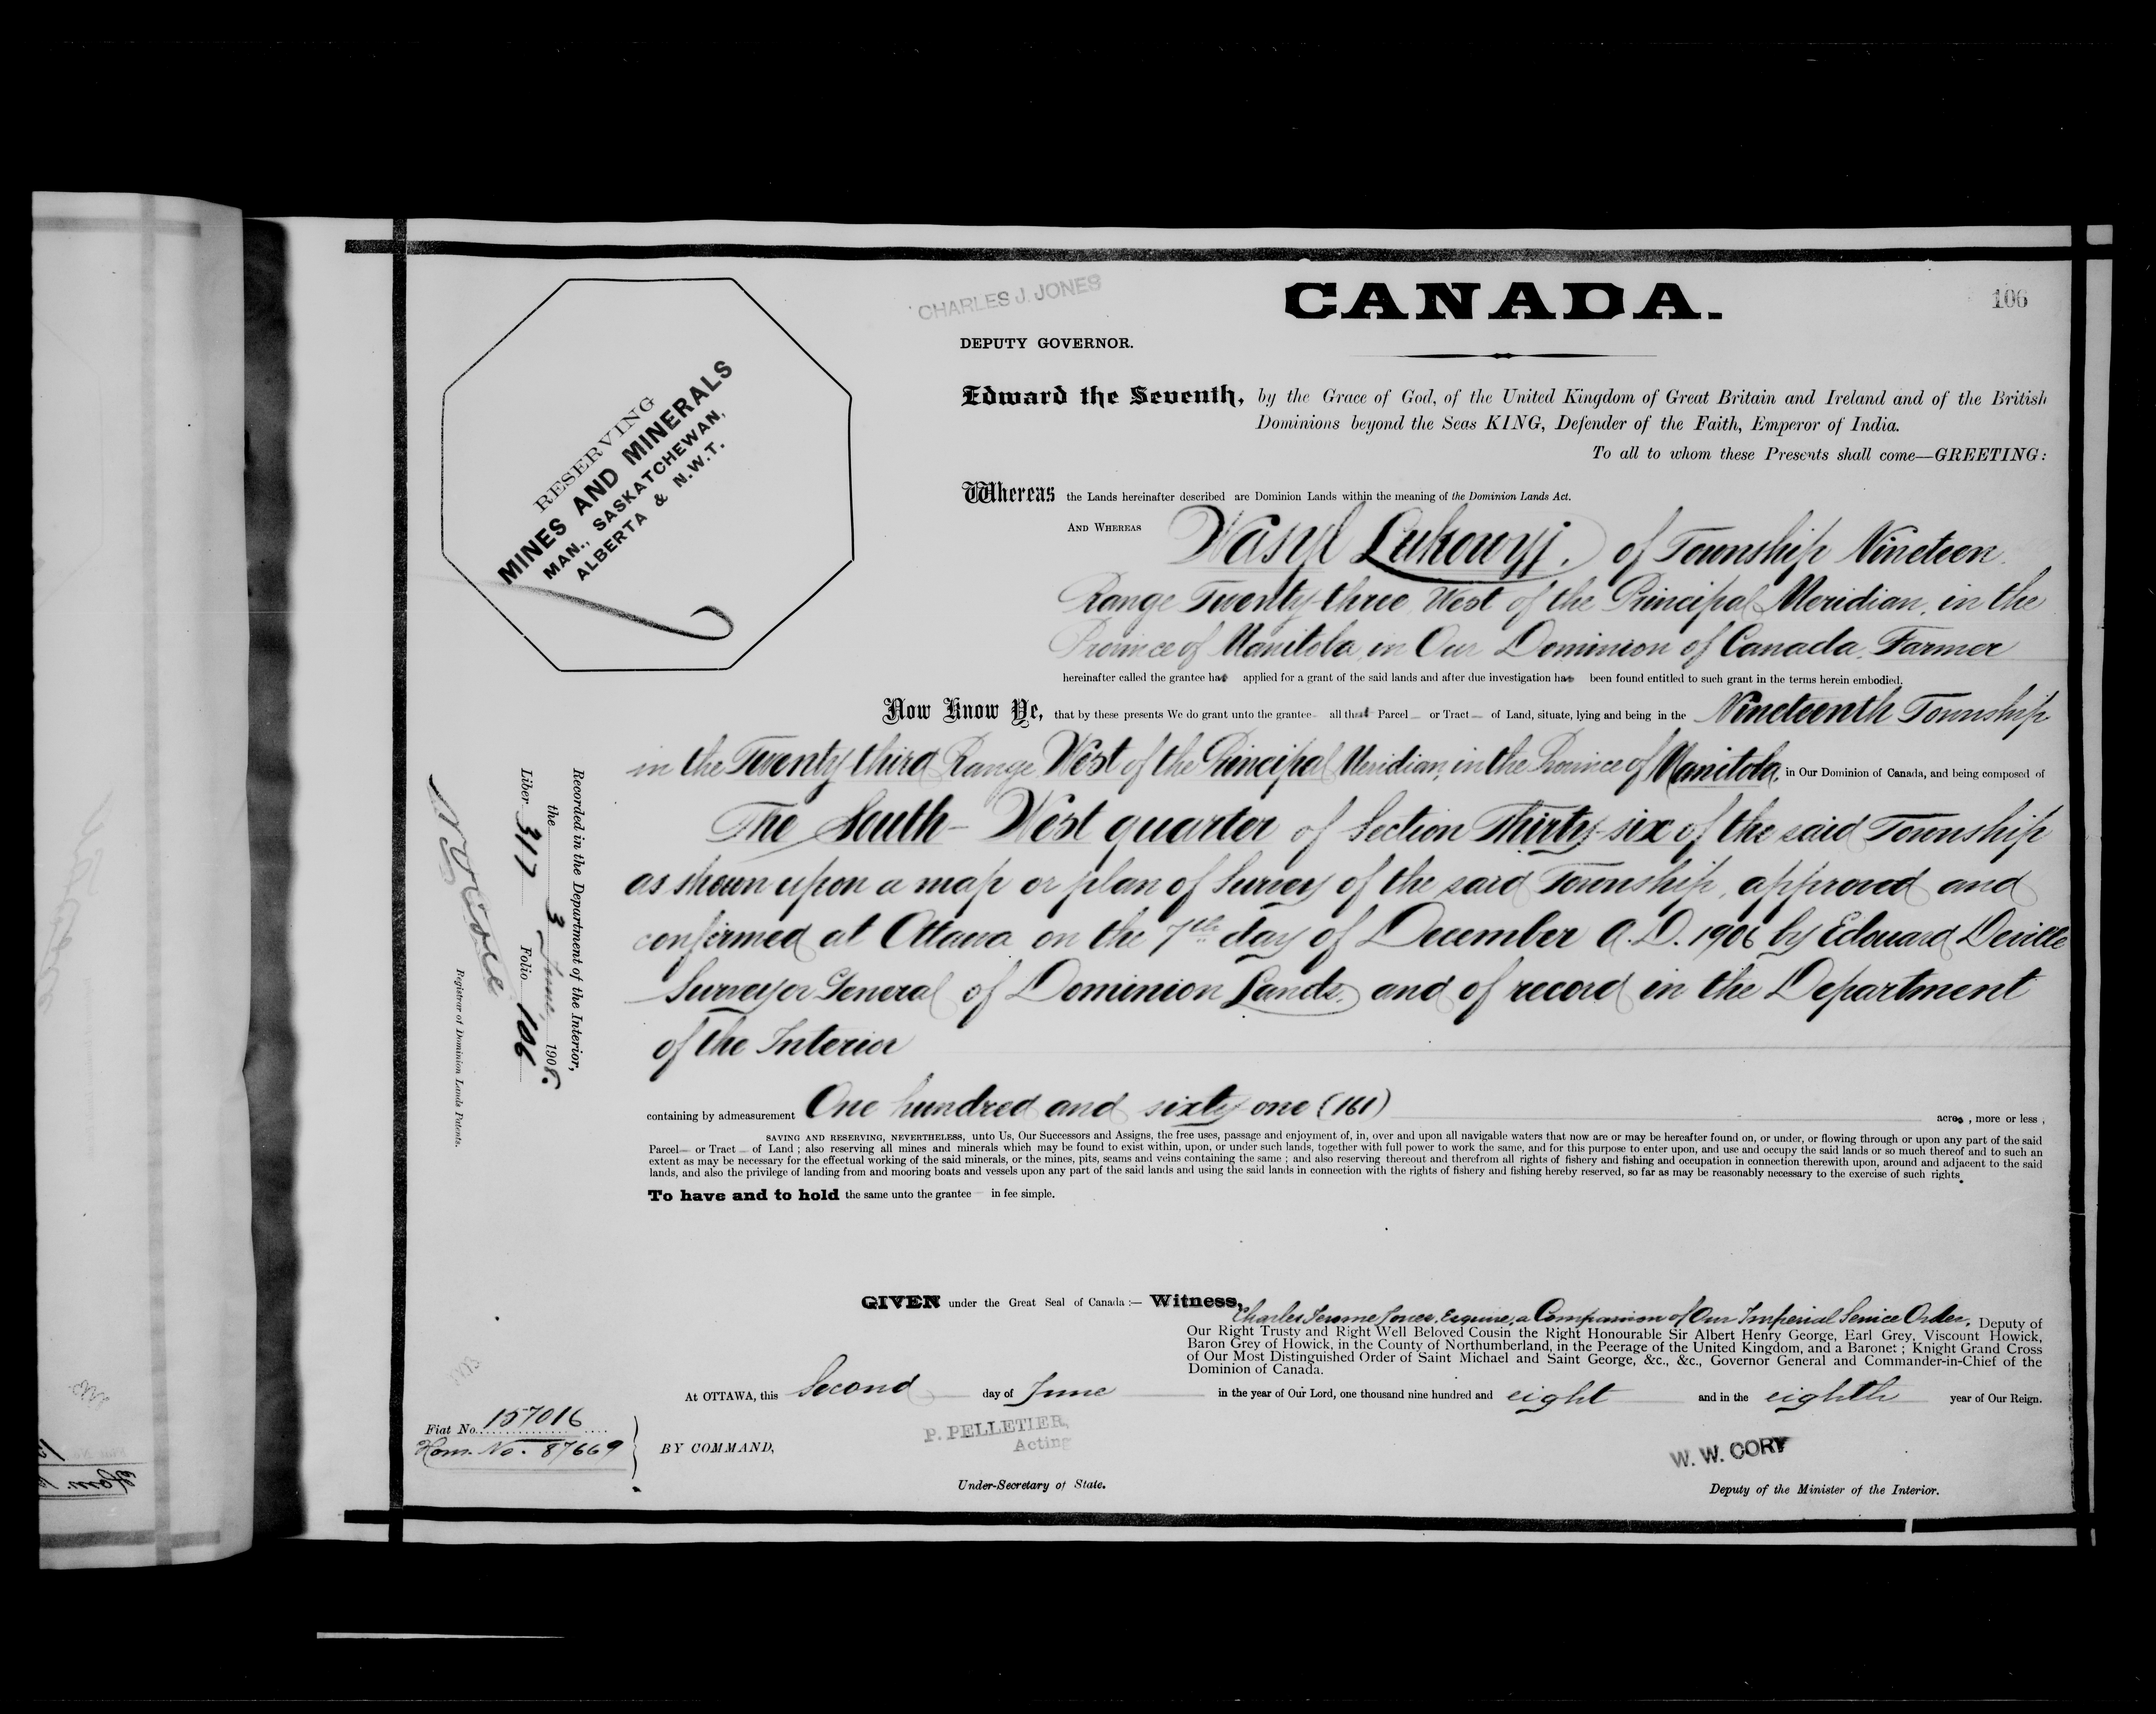 CHARLES J. JONES
CANADA.
106
DEPUTY GOVERNOR.
RESERVING
MINES AND MINERALS
MAN., SASKATCHEWAN,
ALBERTA & N.W.T.
Edward the Seventh, by the Grace of God, of the United Kingdom of Great Britain and Ireland and of the British
Dominions beyond the Seas KING, Defender of the Faith, Emperor of India.
To all to whom these Presents shall come—GREETING:
Whereas the Lands hereinafter described are Dominion Lands within the meaning of the Dominion Lands Act.
AND WHEREAS Wasyl Lukowyj, of Township Nineteen
Range Twenty-three West of the Principal Meridian, in the
Province of Manitoba in Our Dominion of Canada, Farmer
hereinafter called the grantee has applied for a grant of the said lands and after due investigation has been found entitled to such grant in the terms herein embodied.
Now Know Ye, that by these presents We do grant unto the grantee all that Parcel or Tract of Land, situate, lying and being in the Nineteenth Township
in the Twenty third Range West of the Principal Meridian, in the Province of Manitoba, in Our Dominion of Canada, and being composed of
The South-West quarter of Section Thirty-six of the said Township
as shown upon a map or plan of Survey of the said Township, approved and
confirmed at Ottawa on the 7th day of December A.D. 1906 by Edouard Deville
Surveyor General of Dominion Lands, and of record in the Department
of the Interior
containing by admeasurement One hundred and sixty one (161) acres, more or less,
SAVING AND RESERVING, NEVERTHELESS, unto Us, Our Successors and Assigns, the free uses, passage and enjoyment of, in, over and upon all navigable waters that now are or may be hereafter found on, or under, or flowing through or upon any part of the said
Parcel or Tract of Land ; also reserving all mines and minerals which may be found to exist within, upon, or under such lands, together with full power to work the same, and for this purpose to enter upon, and use and occupy the said lands or so much thereof and to such an
extent as may be necessary for the effectual working of the said minerals, or the mines, pits, seams and veins containing the same ; and also reserving thereout and therefrom all rights of fishery and fishing and occupation in connection therewith upon, around and adjacent to the said
lands, and also the privilege of landing from and mooring boats and vessels upon any part of the said lands and using the said lands in connection with the rights of fishery and fishing hereby reserved, so far as may be reasonably necessary to the exercise of such rights.
To have and to hold the same unto the grantee in fee simple.
Recorded in the Department of the Interior,
the 3 June, 1908.
Liber 317 Folio 106
Registrar of Dominion Lands Patents.
GIVEN under the Great Seal of Canada :— Witness,
Charles Jerome Jones, Esquire, a Companion of Our Imperial Service Order, Deputy of
Our Right Trusty and Right Well Beloved Cousin the Right Honourable Sir Albert Henry George, Earl Grey, Viscount Howick,
Baron Grey of Howick, in the County of Northumberland, in the Peerage of the United Kingdom, and a Baronet ; Knight Grand Cross
of Our Most Distinguished Order of Saint Michael and Saint George, &c., &c., Governor General and Commander-in-Chief of the
Dominion of Canada.
At OTTAWA, this Second day of June in the year of Our Lord, one thousand nine hundred and eight and in the eighth year of Our Reign.
Fiat No. 157016
Hom. No. 87669
BY COMMAND,
P. PELLETIER,
Acting
Under-Secretary of State.
W. W. CORY
Deputy of the Minister of the Interior.